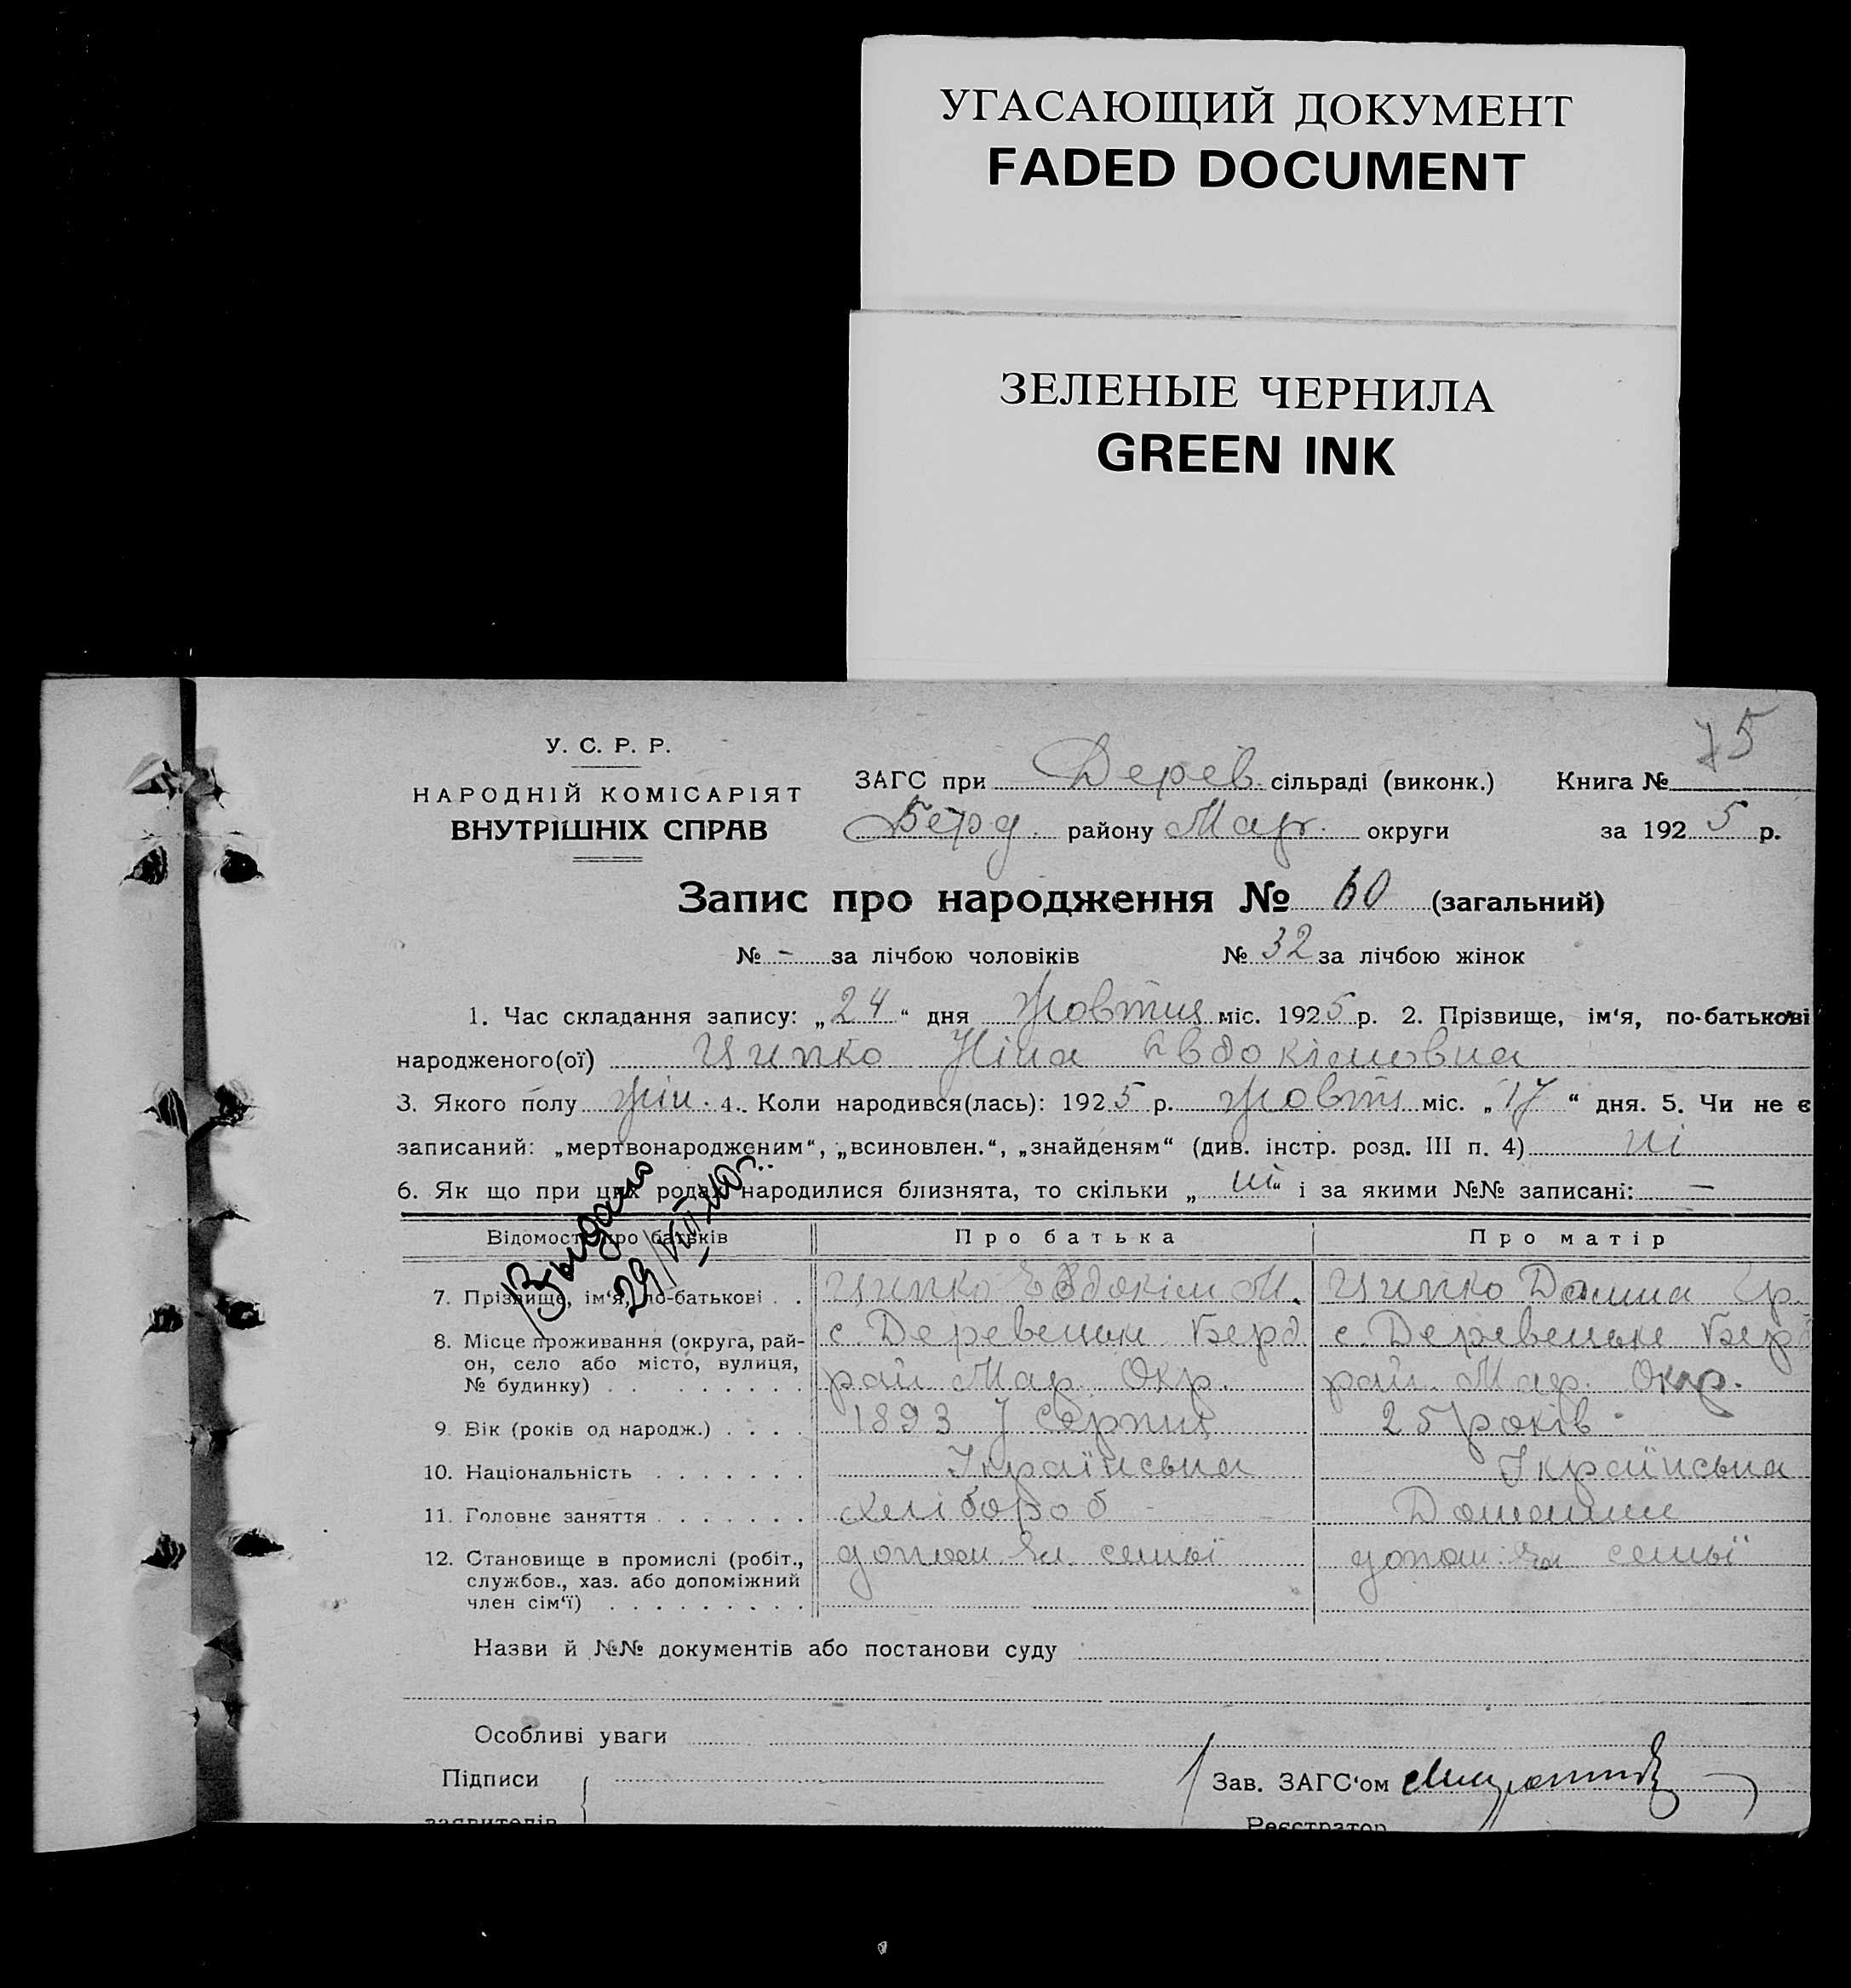 УГАСАЮЩИЙ ДОКУМЕНТ
FADED DOCUMENT
ЗЕЛЕНЫЕ ЧЕРНИЛА
GREEN INK
75
У. С. Р. Р.
НАРОДНІЙ КОМІСАРІЯТ
ВНУТРІШНІХ СПРАВ
ЗАГС при Дерев. сільраді (виконк.) Книга №
Берд. району Мар. округи за 1925 р.
Запис про народження № 60 (загальний)
№ - за лічбою чоловіків № 32 за лічбою жінок
1. Час складання запису: „24“ дня Жовтня міс. 1925 р. 2. Прізвище, ім‘я, по-батькові
народженого(ої) Ципко Ніна Євдокімовна
3. Якого полу жін. 4. Коли народився(лась): 1925 р. жовтн міс. „17“ дня. 5. Чи не є
записаний: „мертвонародженим“, „всиновлен.“, „знайденям“ (див. інстр. розд. III п. 4) ні
6. Як що при цих родах народилися близнята, то скільки „ні“ і за якими №№ записані: —
Видано
29/VII
Відомості про батьків Про батька Про матір
7. Прізвище, ім‘я, по-батькові . . Ципко Євдокім М. Ципко Домна Гр.
8. Місце проживання (округа, рай- с. Деревеньки Берд. с. Деревеньки Берд
он, село або місто, вулиця,
№ будинку) . . рай. Мар. Окр. рай. Мар. Окр.
9. Вік (років од народж.) . . . . 1893 7 серпня 25 років
10. Національність . . . . . . . Українська Українська
11. Головне заняття . . . . . . . Хлібороб Домашни
12. Становище в промислі (робіт., допом. чл. семьї допом. чл семьї
службов., хаз. або допоміжний
член сім‘ї) . . . . . . . . .
Назви й №№ документів або постанови суду
Особливі уваги
Підписи Зав. ЗАГС‘ом
заявителів Реєстратор